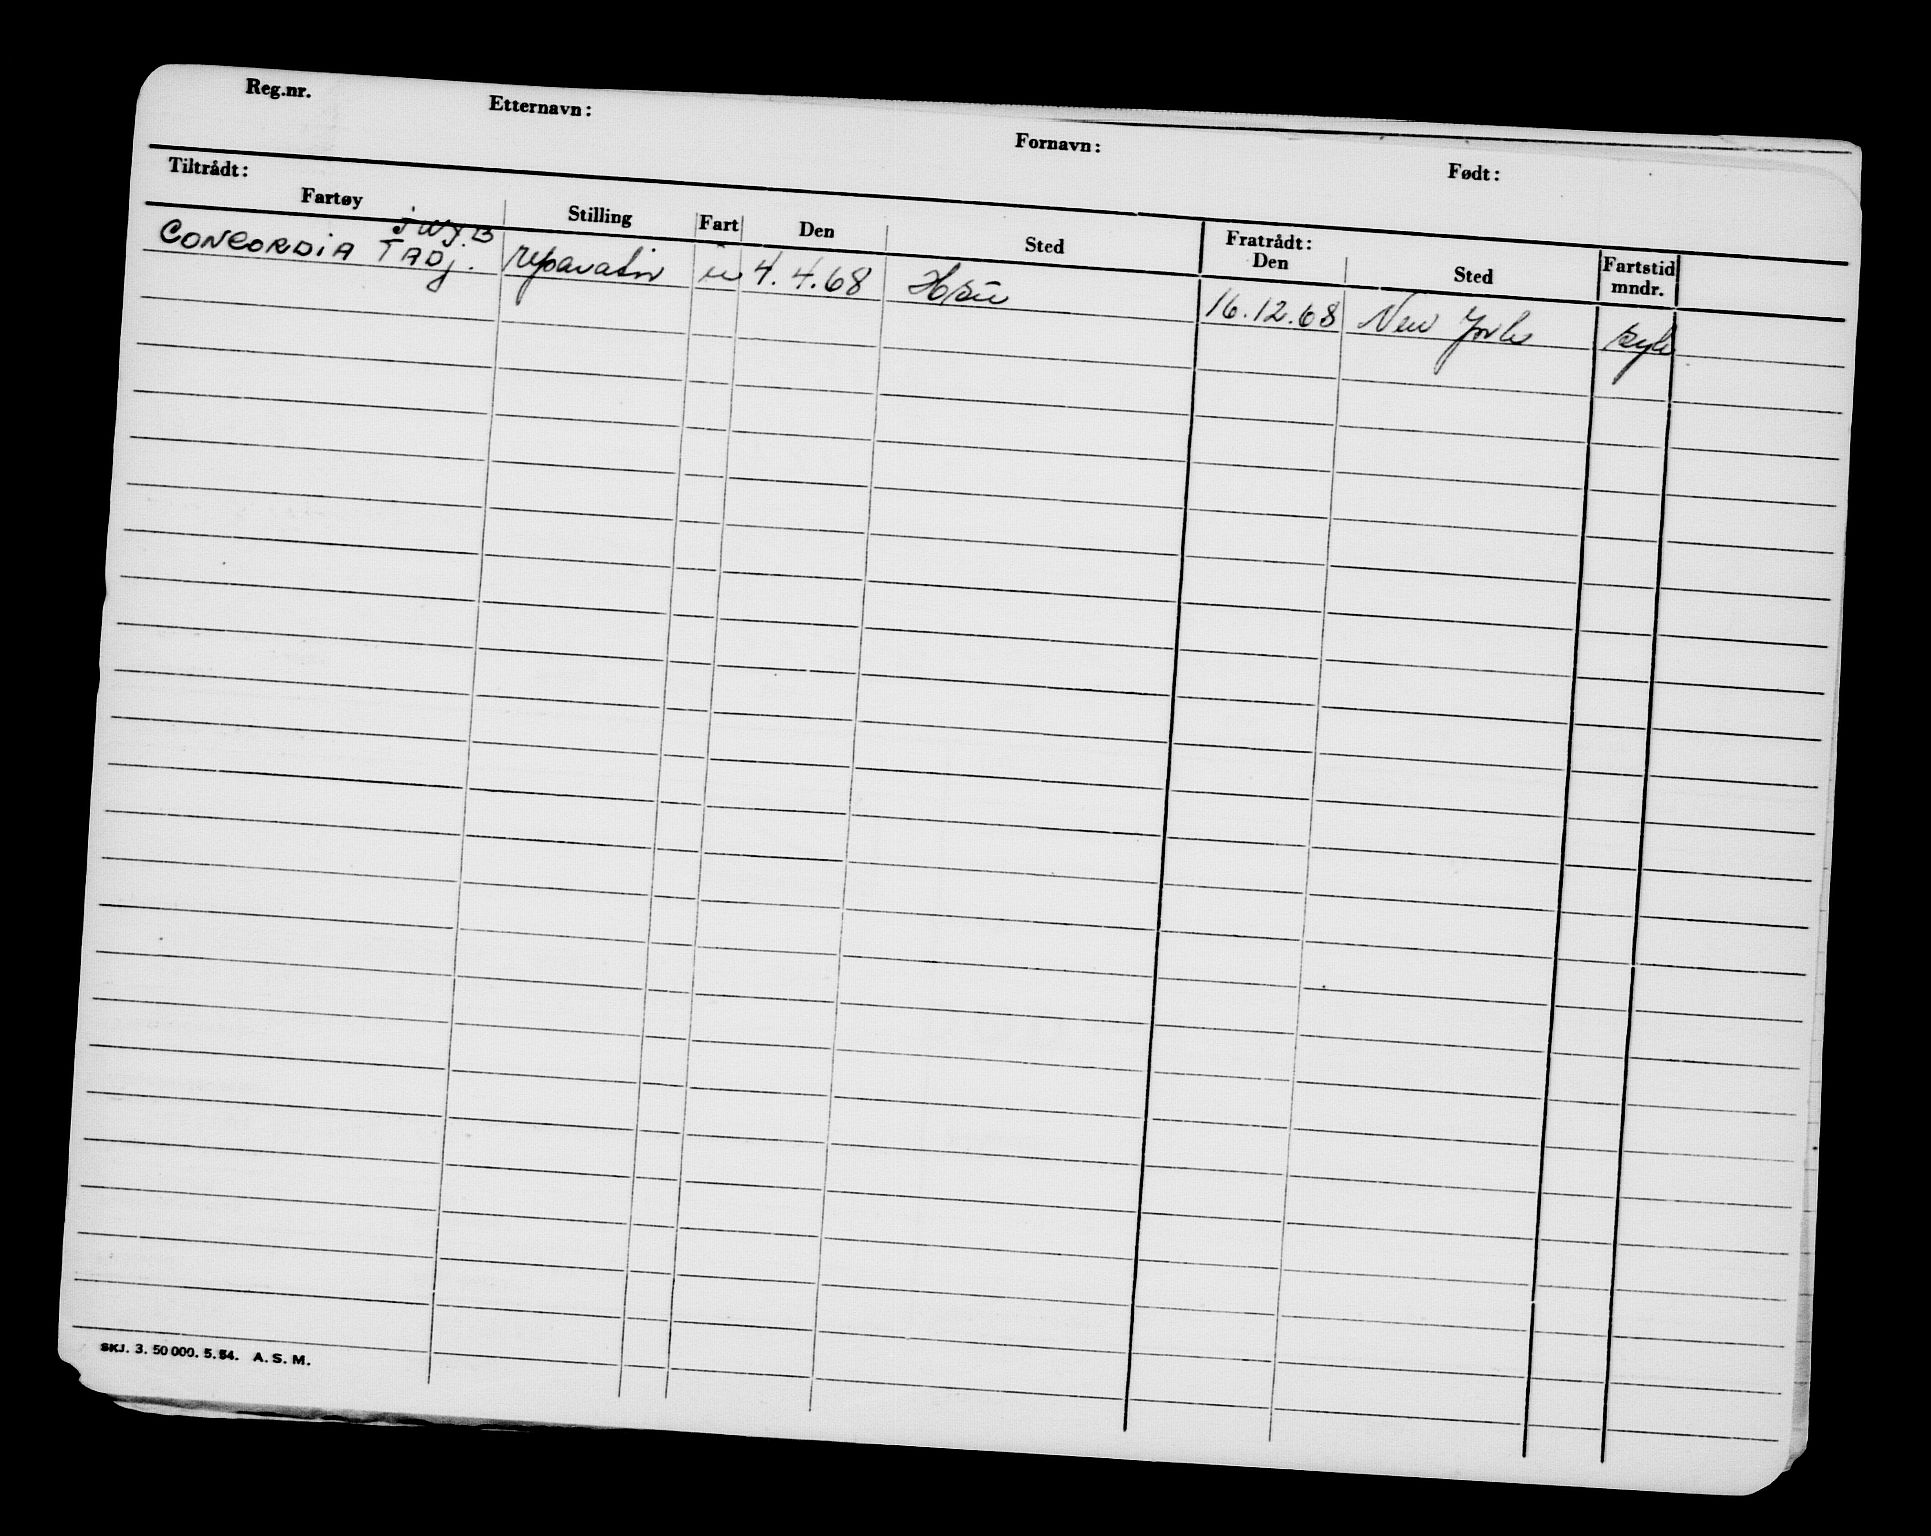 Reg.nr. Etternavn: Fornavn: Født:
Tiltrådt: Fratrådt:
Fartøy Stilling Fart Den Sted Den Sted Fartstid mndr.
JWJB
CONCORDIA TADJ. reparatør u 4.4.68 16.12.68 New York syk
SKJ. 3. 50 000. 5.54. A. S. M.